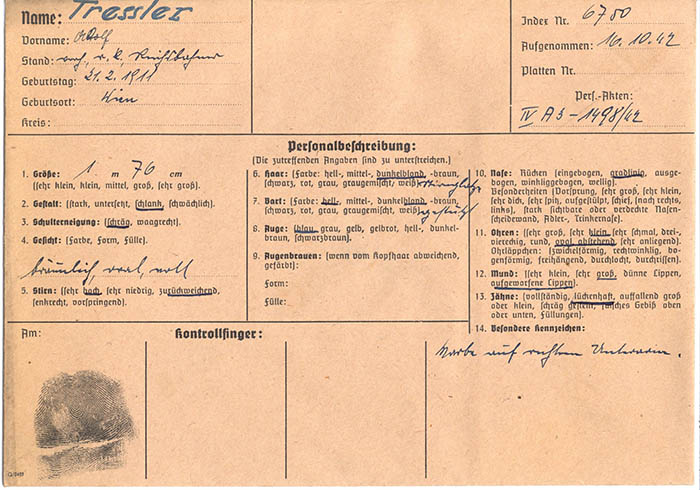 Name: Tressler
Vorname: Adolf
Stand: verh., r. k., Reichsbahner
Geburtstag: 21. 2. 1911
Geburtsort: Wien
Kreis:
Index Nr. 6780
Aufgenommen: 16. 10. 42
Platten Nr.
Pers.-Akten:
IV A 3 - 1498/42
Personalbeschreibung:
(Die zutreffenden Angaben sind zu unterstreichen.)
1. Größe: 1 m 76 cm
(sehr klein, klein, mittel, groß, sehr groß).
2. Gestalt: (stark, untersetzt, schlank, schwächlich).
3. Schulterneigung: (schräg, waagrecht).
4. Gesicht: (Farbe, Form, Fülle).
bräunlich, oval, voll
5. Stirn: (sehr hoch, sehr niedrig, zurückweichend,
senkrecht, vorspringend).
6. Haar: (Farbe: hell-, mittel-, dunkelblond, -braun,
schwarz, rot, grau, graugemischt, weiß)
7. Bart: (Farbe: hell-, mittel-, dunkelblond, -braun,
schwarz, rot, grau, graugemischt, weiß) gestutzt
8. Auge: (blau, grau, gelb, gelbrot, hell-, dunkel-
braun, schwarzbraun).
9. Augenbrauen: (wenn vom Kopfhaar abweichend,
gefärbt):
Form:
Fülle:
10. Nase: Rücken (eingebogen, gradlinig, ausge-
bogen, winkliggebogen, wellig).
Besonderheiten (Vorsprung, sehr groß, sehr klein,
sehr dick, sehr spitz, aufgestülpt, schief, (nach rechts,
links), stark sichtbare oder verdeckte Nasen-
scheidewand, Adler-, Trinkernase).
11. Ohren: (sehr groß, sehr klein, sehr schmal, drei-,
viereckig, rund, oval, abstehend, sehr anliegend).
Ohrläppchen: (zwickelförmig, rechtwinklig, bo-
genförmig, freihängend, durchlocht, durchrissen).
12. Mund: (sehr klein, sehr groß, dünne Lippen,
aufgeworfene Lippen).
13. Zähne: (vollständig, lückenhaft, auffallend groß
oder klein, schräg gestellt, falsches Gebiß oben
oder unten, Füllungen).
14. Besondere Kennzeichen:
Narbe auf rechten Unterarm.
Am:
Kontrollfinger: